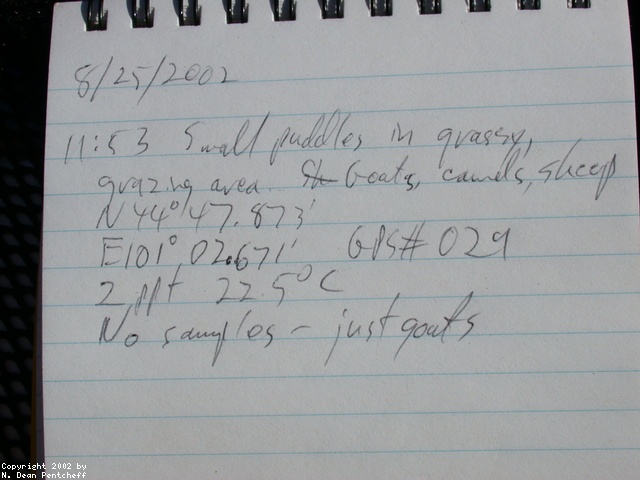 8/25/2002
11:53 Small puddles in grassy,
grazing area. Goats, camels, sheep
N44° 47.873'
E101° 02.671' GPS# 029
2 ppt 22.5°C
No samples - just goats
Copyright 2002 by
N. Dean Pentcheff